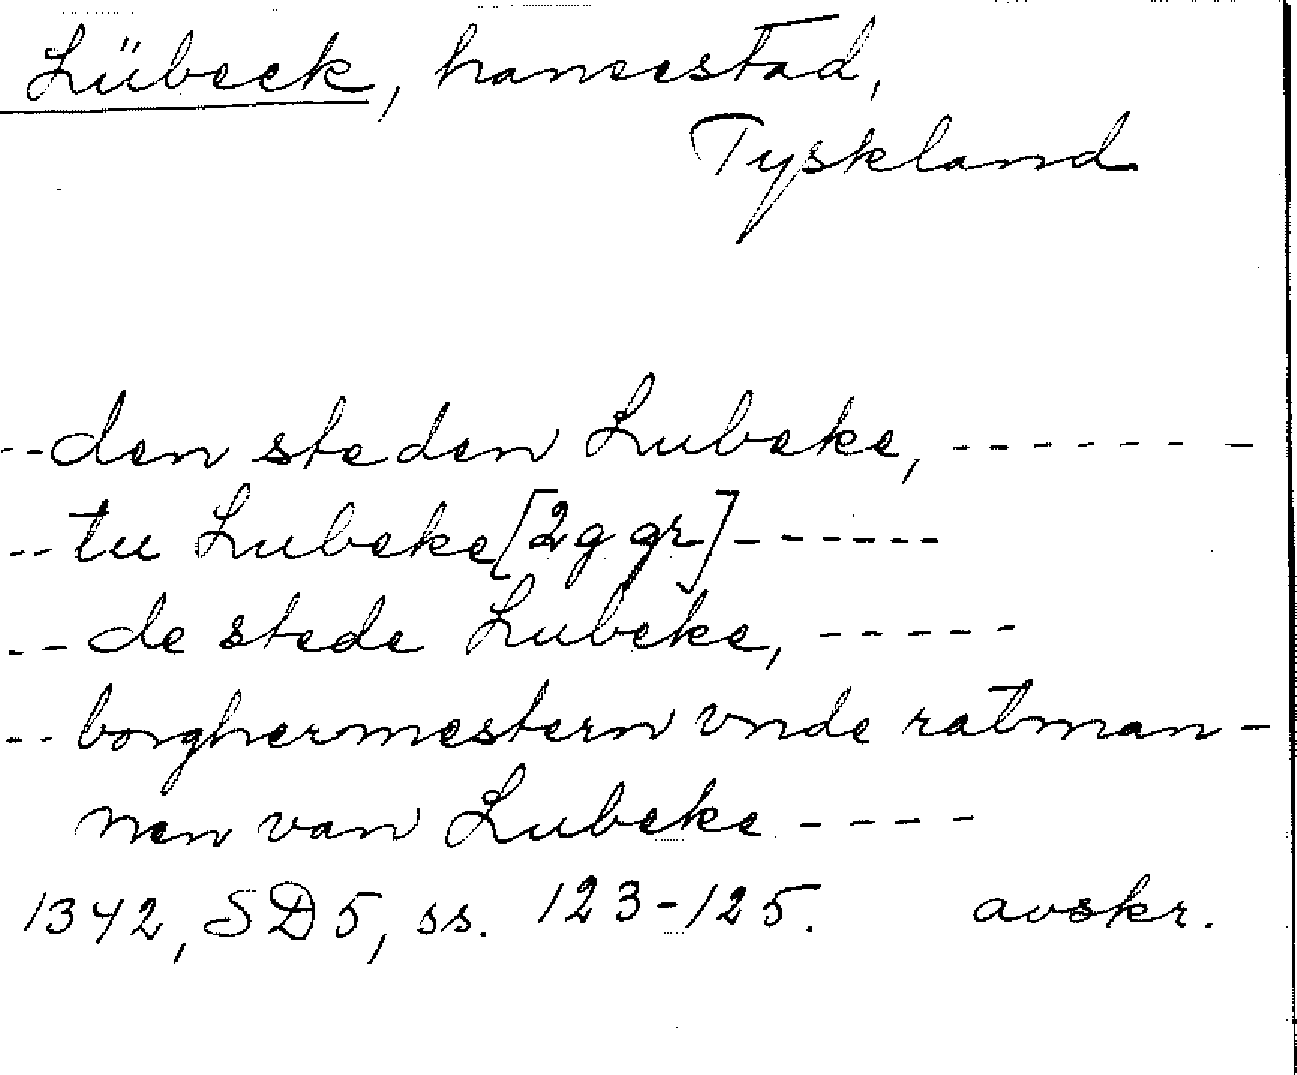 Lübeck, hansestad,
Tyskland
--den steden Lubeke, -------
--tu Lubeke [2 g gr]------
--de stede Lubeke, -----
--borghermestern vnde ratman-
nen van Lubeke ----
1342, SD5, ss. 123-125. avskr.